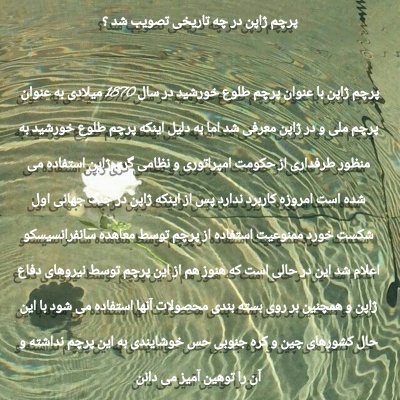 پرچم ژاپن در چه تاریخی تصویب شد ؟
پرچم ژاپن با عنوان پرچم طلوع خورشید در سال 1870 میلادی به عنوان
پرچم ملی و در ژاپن معرفی شد اما به دلیل اینکه پرچم طلوع خورشید به
منظور طرفداری از حکومت امپراتوری و نظامی گری ژاپن استفاده می
شده است امروزه کاربرد ندارد پس از اینکه ژاپن در جنگ جهانی اول
شکست خورد ممنوعیت استفاده از پرچم توسط معاهده سانفرانسیسکو
اعلام شد این در حالی است که هنوز هم از این پرچم توسط نیروهای دفاع
ژاپن و همچنین بر روی بسته بندی محصولات آنها استفاده می شود با این
حال کشورهای چین و کره جنوبی حس خوشایندی به این پرچم نداشته و
آن را توهین آمیز می دانن